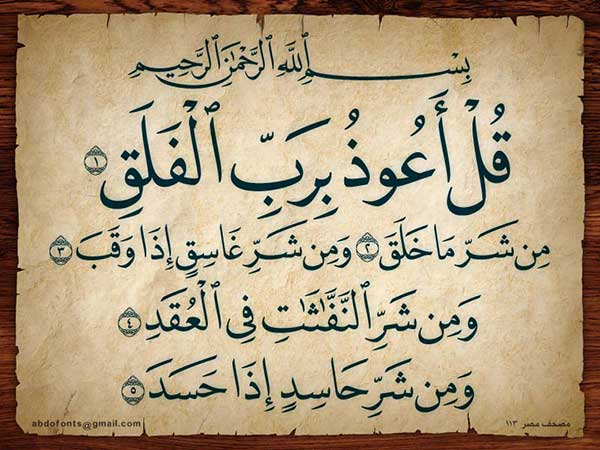 بِسْمِ ٱللَّهِ ٱلرَّحْمَٰنِ ٱلرَّحِيمِ
قُلْ أَعُوذُ بِرَبِّ ٱلْفَلَقِ ١
مِن شَرِّ مَا خَلَقَ ٢ وَمِن شَرِّ غَاسِقٍ إِذَا وَقَبَ ٣
وَمِن شَرِّ ٱلنَّفَّٰثَٰتِ فِى ٱلْعُقَدِ ٤
وَمِن شَرِّ حَاسِدٍ إِذَا حَسَدَ ٥
مصحف مصر ١١٣
abdofonts@gmail.com